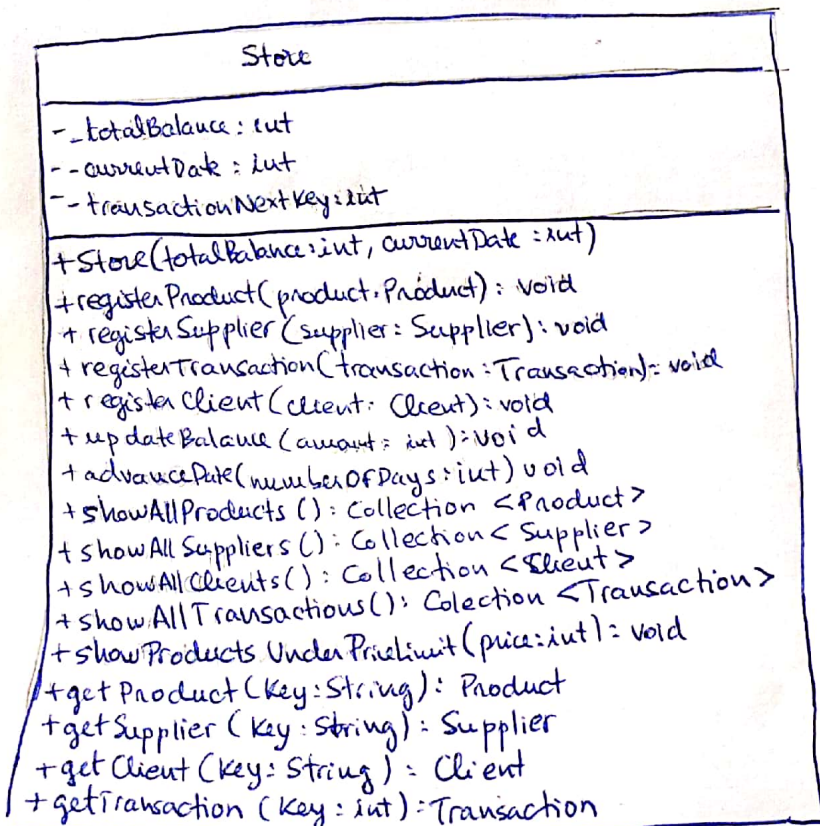 Store
- _totalBalance: int
- -currentDate: int
- -transactionNextKey: int
+Store(totalBalance: int, currentDate: int)
+registerProduct(product: Product): void
+ registerSupplier(supplier: Supplier): void
+ registerTransaction(transaction: Transaction): void
+ registerClient(client: Client): void
+ updateBalance(amount: int): void
+ advanceDate(numberOfDays: int) void
+ showAllProducts(): Collection <Product>
+ showAllSuppliers(): Collection <Supplier>
+ showAllClients(): Collection <Client>
+ showAllTransactions(): Colection <Transaction>
+ showProductsUnderPriceLimit(price: int): void
+get Product(Key: String): Product
+getSupplier(Key: String): Supplier
+get Client(Key: String): Client
+getTransaction(Key: int): Transaction